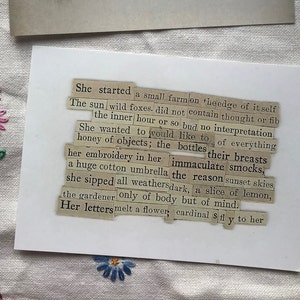 She started a small farm on the edge of itself
The sun, wild foxes. did not contain thought or fib
the inner hour or so bud no interpretation
She wanted to could like to of everything
honey of objects; the bottles their breasts
her embroidery in her immaculate smocks,
a huge cotton umbrella the reason sunset skies
she sipped all weathers dark, a slice of lemon,
the gardener only of body but of mind;
Her letters melt a flower, cardinal s fly to her